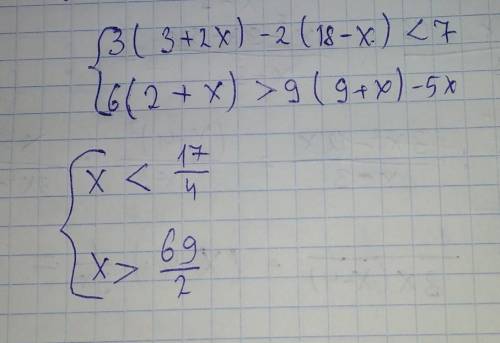 {3(3+2x)-2(18-x.)<7
6(2+x)>9(9+x)-5x
{x < 17/4
x > 69/2